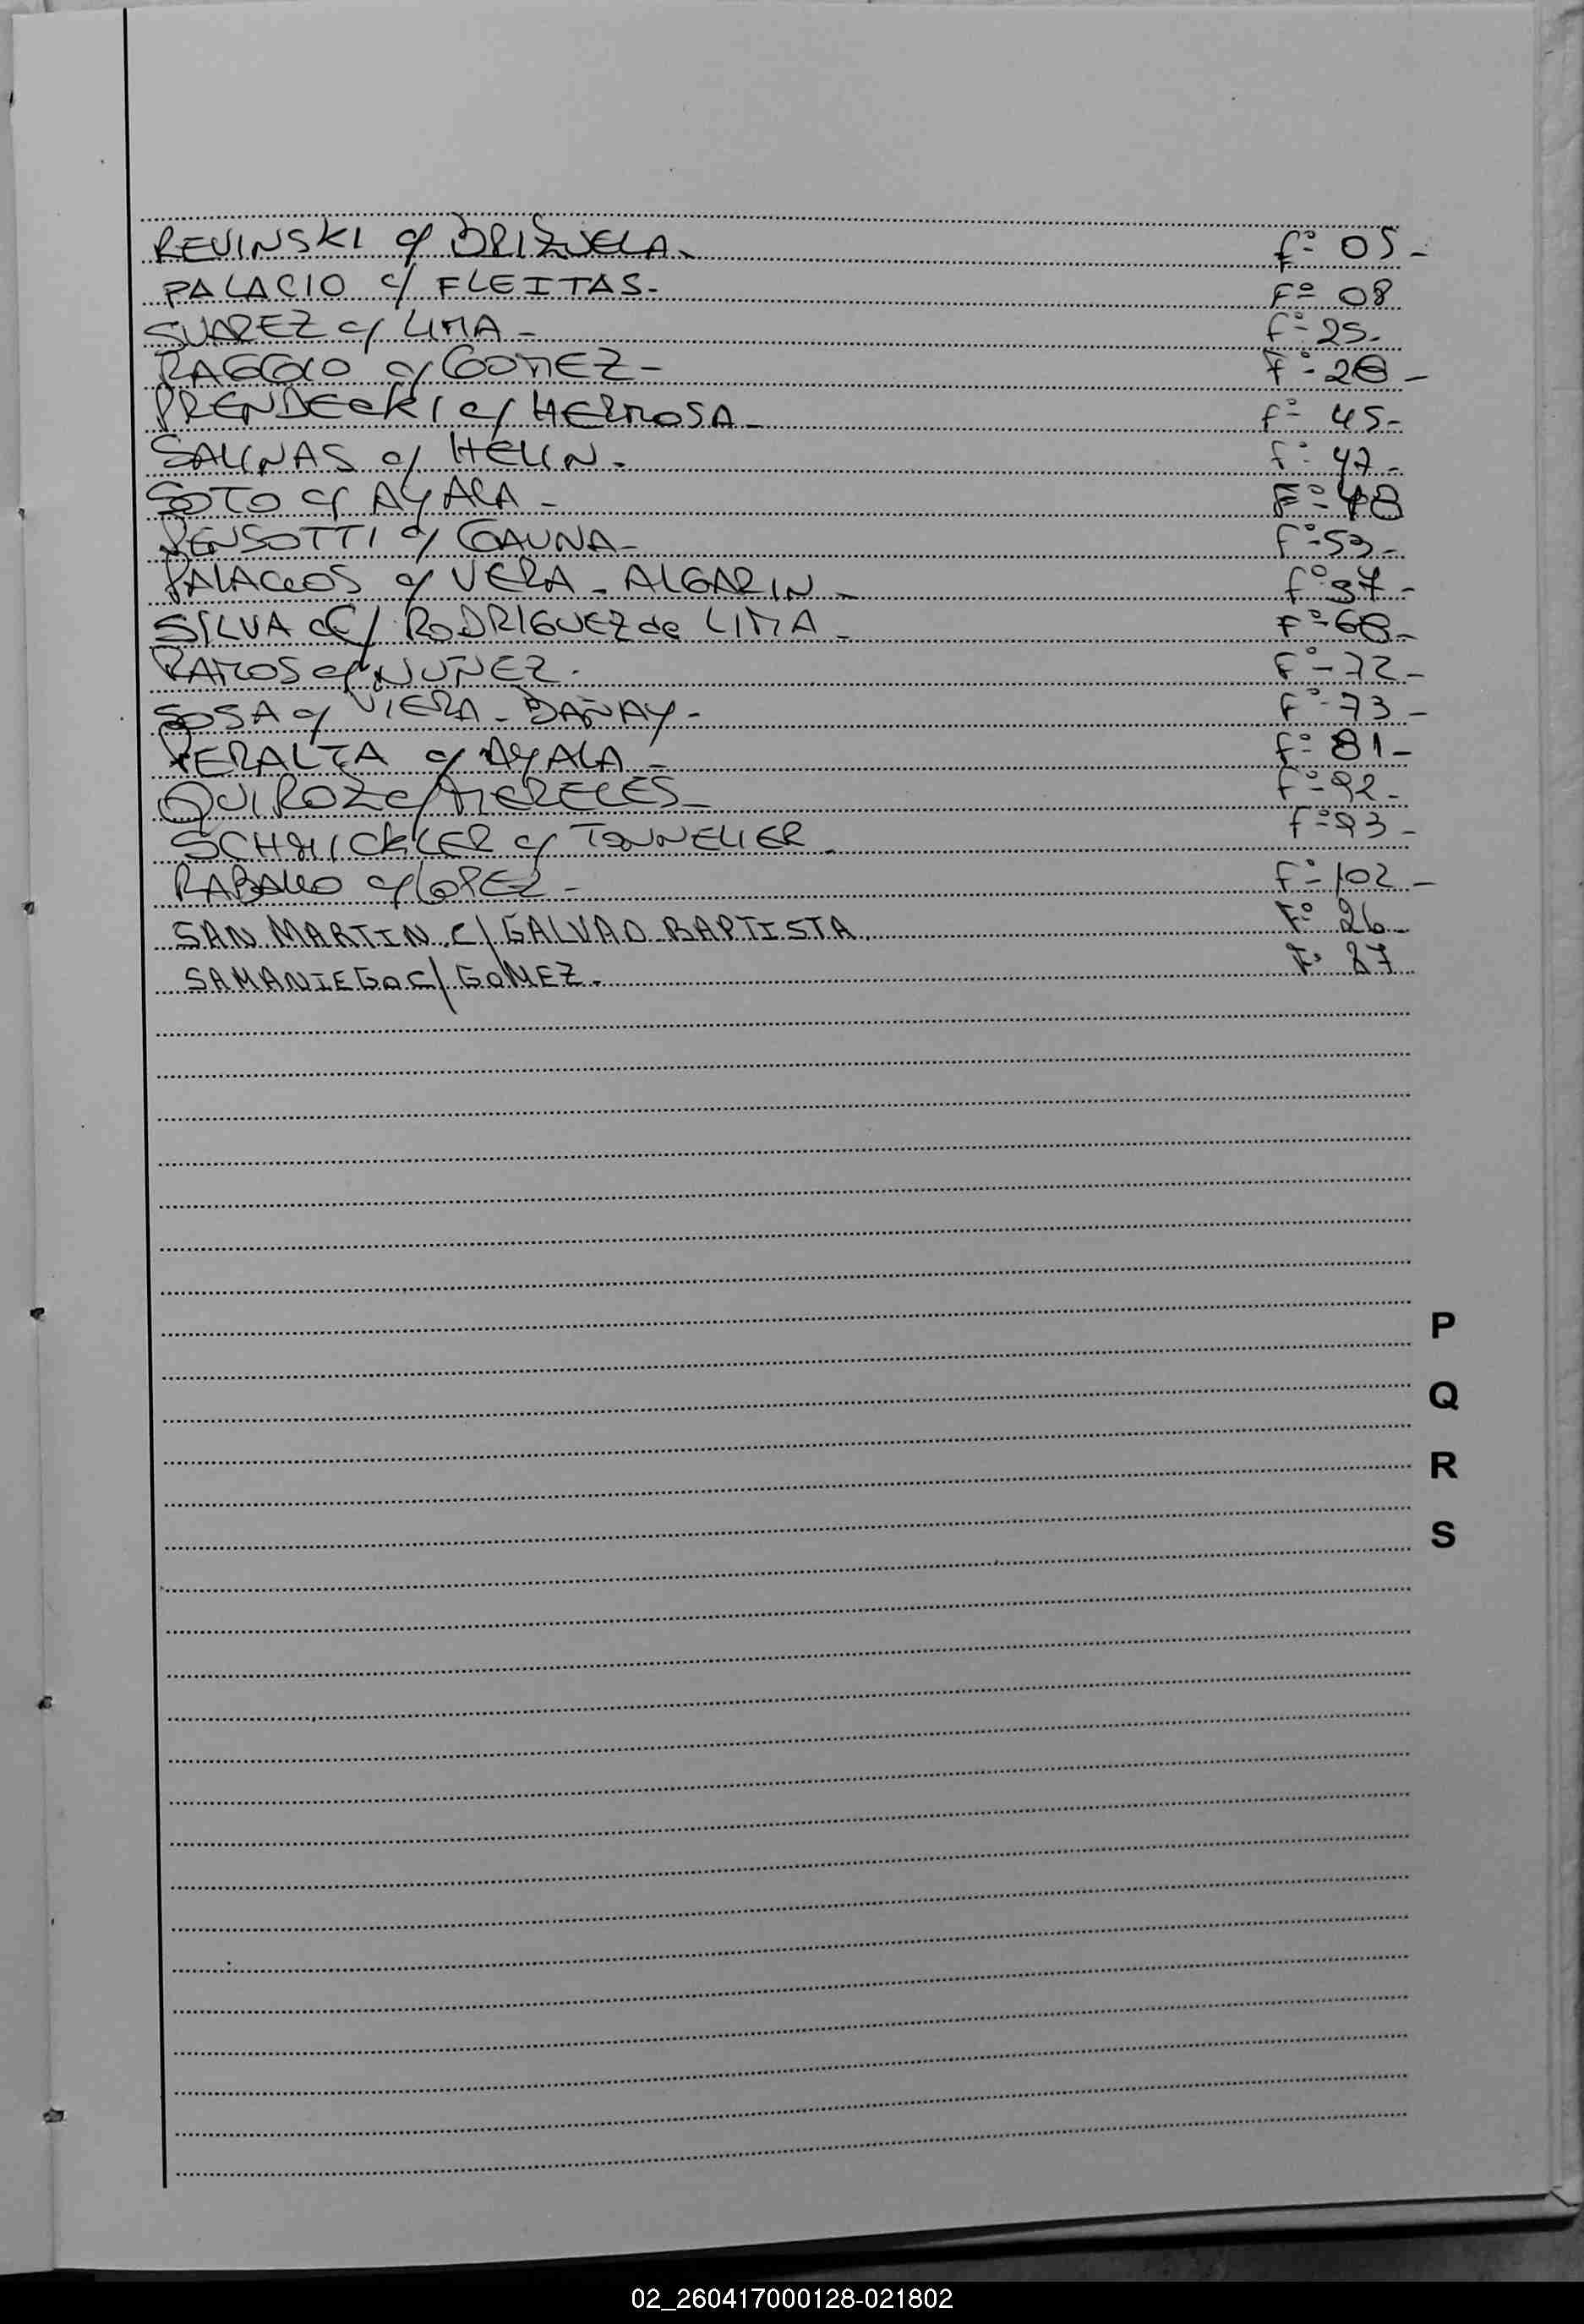 REVINSKI c/ BRIZUELA. Fº 05-
PALACIO c/ FLEITAS. Fº 08
SUAREZ c/ LIMA - Fº 25-
RAGGIO c/ GOMEZ - Fº 28 -
PRENDECKI c/ HERMOSA - Fº 45-
SALINAS c/ HELIN. Fº 47-
SOTO c/ AYALA - Fº 48
PENSOTTI c/ GAUNA - Fº 53-
PALACIOS c/ VERA - ALGARIN - Fº
SILVA C/ RODRIGUEZ de LIMA - Fº 68-
RAMOS c/ NUÑEZ. Fº 72-
SOSA c/ VIERA - DANAY - Fº 73 -
PERALTA c/ AYALA - Fº 81-
QUIROZ c/ MERELES - Fº 92-
SCHMICKLER c/ TONNELIER. Fº 93-
RABALLO c/ LOPEZ - Fº 102 -
SAN MARTIN C/ GALVAO BAPTISTA. Fº 26-
SAMANIEGO C/ GOMEZ. Fº 27
P
Q
R
S
02_260417000128-021802